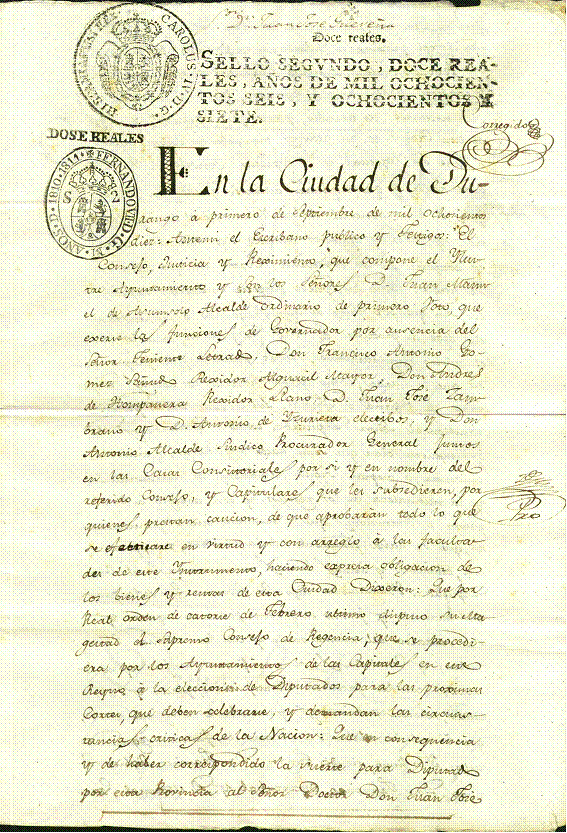 Sr. Dn. Juan José Guereña
Doce reales.
HISPANIARUM REX CAROLUS IV D. G.
SELLO SEGVNDO, DOCE REA-
LES, AÑOS DE MIL OCHOCIEN-
TOS SEIS, Y OCHOCIENTOS Y
SIETE.
Corregdo
DOSE REALES
FERNANDO VII D. G. AÑOS D. 1810. 1811
S 2
En la Ciudad de Du-
rango á primero de Septiembre de mil ochocientos
diez: Antemi el Escribano publico y Testigos: El
Consejo, Justicia y Reximiento, que compone el Ylus-
tre Ayuntamiento y son los Señores D. Juan Manu-
el de Asunsolo Alcalde ordinario de primero Voto, que
exerse las funciones de Governador por ausencia del
Señor Teniente Letrado, Don Francisco Antonio Go-
mez Sañudo Rexidor Alguacil Mayor, Don Andres
de Hompanera Rexidor Llano, D. Juan José Zam-
brano y D. Antonio de electivos, y Don
Antonio Alcalde Sindico Procurador General Juntos
en las Casas Consistoriales por si y en nombre del
referido Consejo, y Capitulares que les subsedieren, por
quienes prestan caucion, de que aprobarán todo lo que
se efectuare en virtud y con arreglo á las faculta-
des de este Ynstrumento, haciendo expresa obligacion de
los bienes y rentas de esta Ciudad Dixeron: Que por
Real orden de catorse de Febrero ultimo dispuso su Ma-
gestad el Supremo Consejo de Regencia, que se procedi-
era por los Ayuntamientos de las Capitales en este
Reyno á la eleccion de Diputados para las proximas
Cortes, que deben celebrarse, y demandan las circuns-
tancias criticas de la Nacion: Que en consequencia
y de haber correspondido la suerte para Diputado
por esta Provincia al Señor Doctor Don Juan José